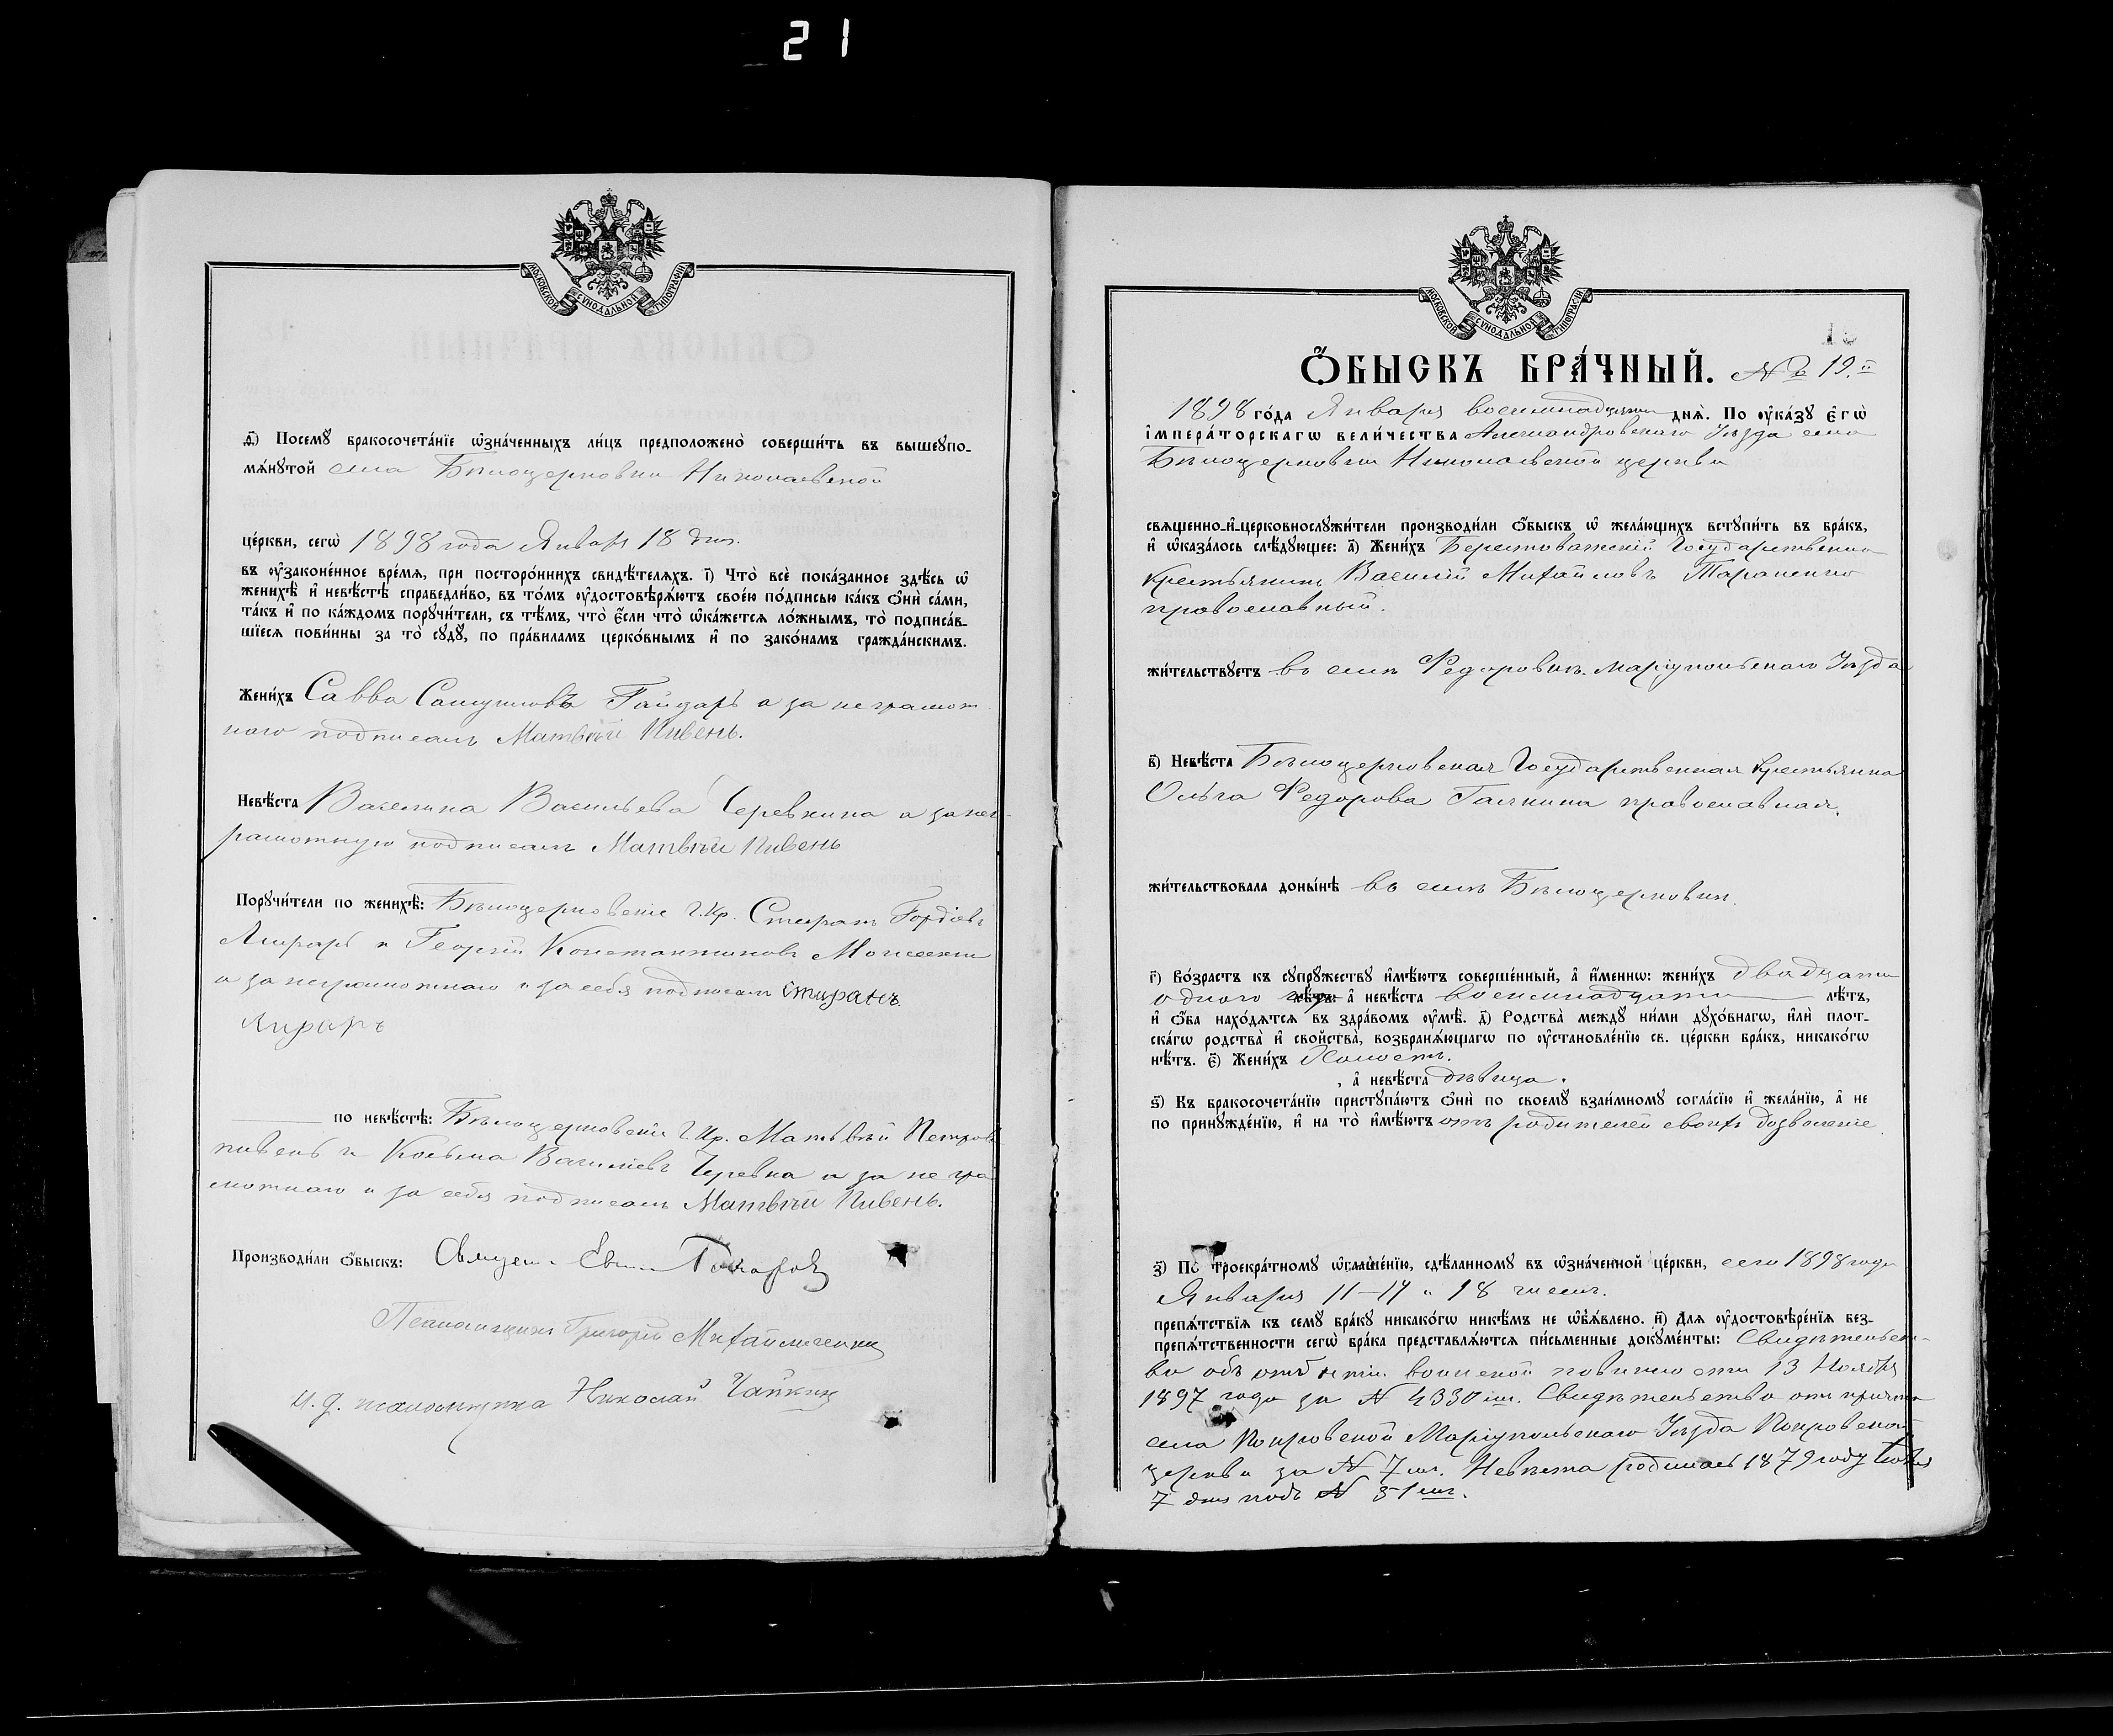 21
МОСКОВСКОЙ СѴНОДАЛЬНОЙ ТИПОГРАФІИ
д҃.) Посемꙋ̀ бракосочета́нїе ѡ҆зна́ченныхъ ли́цъ предположено̀ соверши́ть въ вышеꙋпо-
мѧ́нꙋтой села Бѣлоцерковки Николаевской
це́ркви, сегѡ̀ 1898 года Января 18 дня.
въ ᲂу҆законе́нное вре́мѧ, при посторо́ннихъ свидѣ́телѧхъ. і҃) Что̀ всѐ пока́занное здѣ́сь ѡ҆
женихѣ̀ и҆ невѣ́стѣ справедли́во, въ то́мъ ᲂу҆достовѣрѧ́ютъ свое́ю по́дписью ка́къ ѻ҆нѝ са́ми,
та́къ и҆ по ка́ждомъ порꙋчи́тели, съ тѣ́мъ, что̀ є҆́сли что̀ ѡ҆ка́жетсѧ ло́жнымъ, то̀ подписа́в-
шїесѧ пови́нны за то̀ сꙋдꙋ̀, по пра́виламъ церко́внымъ и҆ по зако́намъ гражда́нскимъ.
Жени́хъ Савва Самуиловъ Гайдаръ а за неграмот
наго подписалъ Матвѣй Пивень.
Невѣ́ста Васильева Черевкина а за нег-
рамотную подписалъ Матвѣй Пивень
Порꙋчи́тели по женихѣ̀: Бѣлоцерковскіе Г. Кр. Гордіевъ
и Георгій Константиновъ
а за неграмотнаго и за себя подписалъ
по невѣ́стѣ: Бѣлоцерковскіе Г. Кр. Матвѣй Петровъ
Пивень и Косьма Василіевъ Черевка а за негра
мотнаго и за себя подписалъ Матвѣй Пивень.
Производи́ли ѻ҆́быскъ:
Псаломщикъ Григорій Михайличенко
И. д. псаломщика Николай Чайкинъ
МОСКОВСКОЙ СѴНОДАЛЬНОЙ ТИПОГРАФІИ
Ѻ҆́БЫСКЪ БРА́ЧНЫЙ. № 19.й
1898 го́да Января восемнадцатаго днѧ̀. По ᲂу҆ка́зꙋ Є҆гѡ̀
і҆мпера́торскагѡ вели́чества Александровскаго Уѣзда села
Бѣлоцерковки Николаевской церкви
свѧщенно-и҆-церковнослꙋжи́тели производи́ли ѻ҆́быскъ ѡ҆ жела́ющихъ встꙋпи́ть въ бра́къ,
и҆ ѡ҆каза́лось слѣ́дꙋющее: а҃) Жени́хъ Государственно
Крестьянинъ Василій Михайловъ Тараненко
православный.
жи́тельствꙋетъ въ селѣ Федоровкѣ. Маріупольскаго Уѣзда
в҃) Невѣ́ста Бѣлоцерковская Государственная крестьянка
Ольга Федорова Галкина православная.
жи́тельствовала доны́нѣ въ селѣ Бѣлоцерковки.
г҃) Во́зрастъ къ сꙋпрꙋ́жествꙋ и҆мѣ́ютъ соверше́нный, а҆ и҆́меннѡ: жени́хъ двадцати
одного лѣ́тъ а҆ невѣ́ста восемнадцати лѣ́тъ,
и҆ ѻ҆́ба нахо́дѧтсѧ въ здра́вомъ ᲂу҆мѣ̀. д҃) Родства̀ междꙋ̀ ни́ми дꙋхо́внагѡ, и҆лѝ плот-
ска́гѡ родства̀ и҆ свойства̀, возбранѧ́ющагѡ по ᲂу҆становле́нїю св. це́ркви бра́къ, никако́гѡ
нѣ́тъ. є҃) Жени́хъ Холостъ.
, а҆ невѣ́ста дѣвица.
ѕ҃) Къ бракосочета́нїю пристꙋпа́ютъ ѻ҆нѝ по своемꙋ̀ взаи́мномꙋ согла́сїю и҆ жела́нїю, а҆ не
по принꙋжде́нїю, и҆ на то̀ и҆мѣ́ютъ отъ родителей своихъ дозволеніе.
з҃) По троекра́тномꙋ ѡ҆глаше́нїю, сдѣ́ланномꙋ въ ѡ҆зна́ченной це́ркви, сего 1898 года
Января 11-17 и 18 чиселъ.
препѧ́тствїѧ къ семꙋ̀ бра́кꙋ никако́гѡ никѣ́мъ не ѡ҆б̾ѧ́влено. и҃) Длѧ ᲂу҆достовѣре́нїѧ без-
препѧ́тственности сегѡ̀ бра́ка представлѧ́ютсѧ пи́сьменные докꙋме́нты: Свидѣтельст-
во объ отбытіи воинской повинности 13 Ноября
1897 года за № 4330 Свидѣтельство отъ причта
села Покровской Маріупольскаго Уѣзда Покровской
церкви за № 7 Невѣста родилась 1879 году Іюля
7 дня подъ № 51